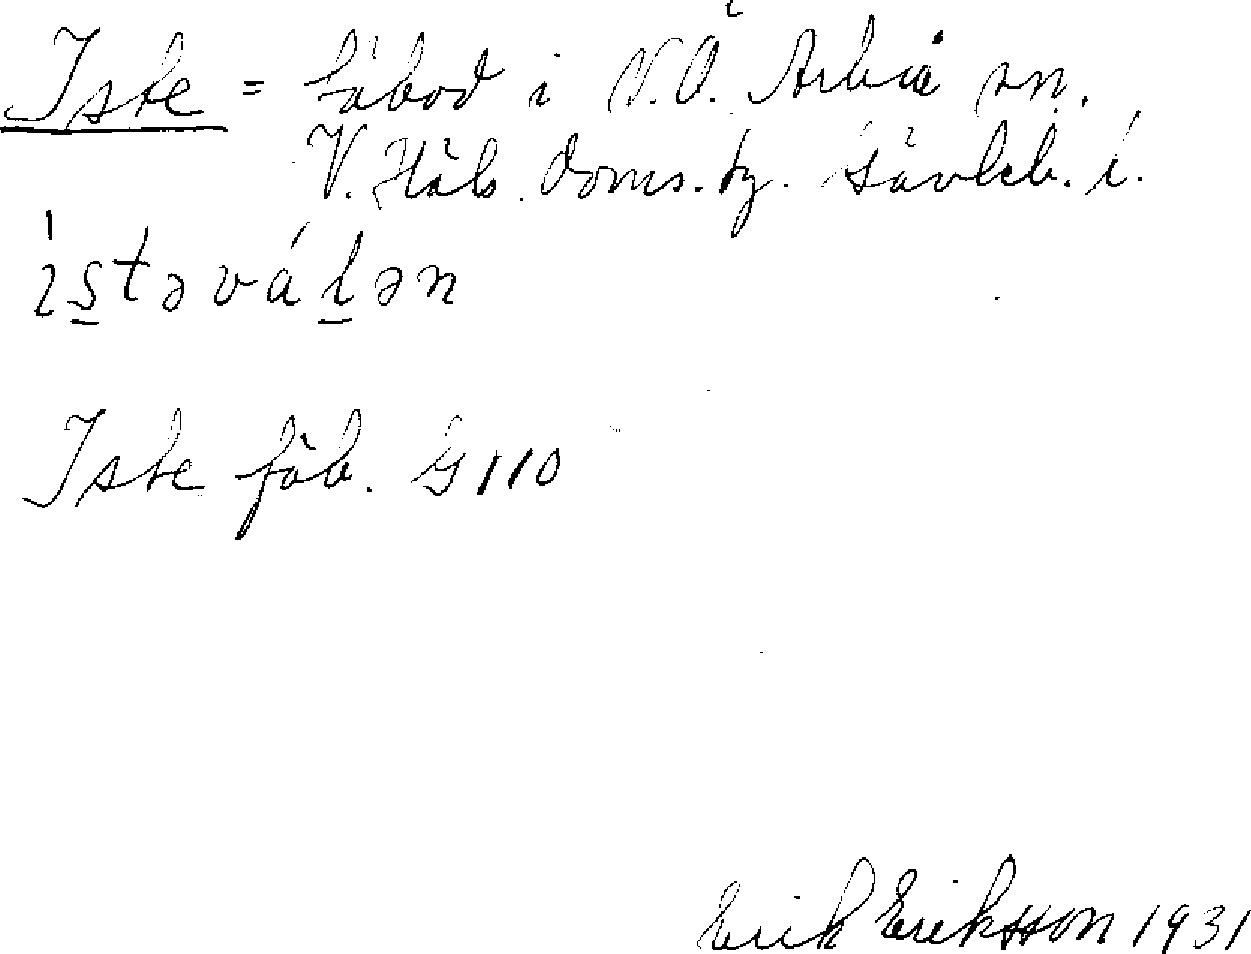 Iste = fäbod i N.Ö. Arbrå sn.
V. Häls. Doms. tg. Gävleb. l.
ìstəválən
Iste fäb. G 110
Erik Eriksson 1931